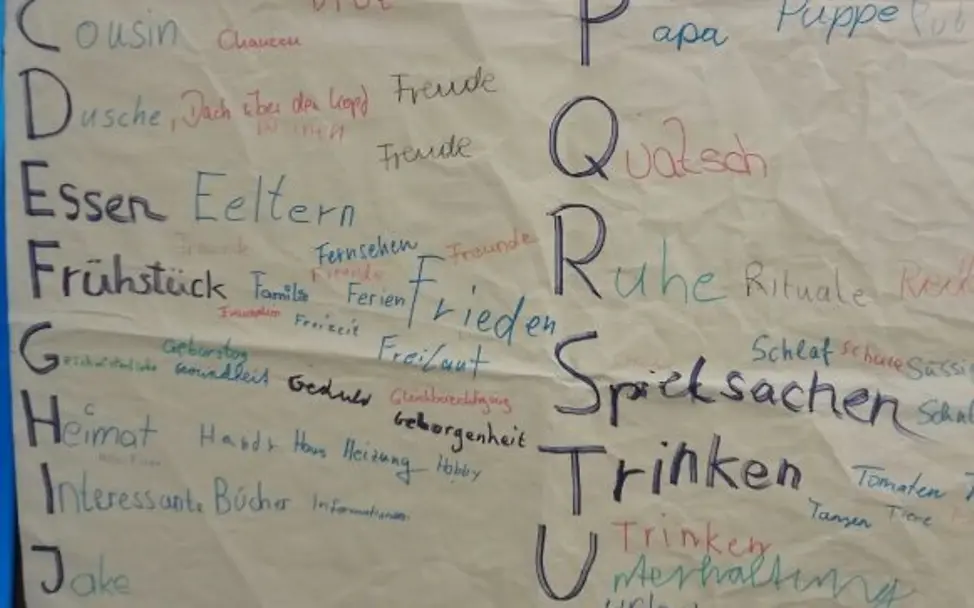 Cousin Chancen
Dusche, Dach über den Kopf Freude
Freude
Essen Eeltern
Freunde
Fernsehen Freunde
Frühstück Familie Ferien Frieden
Freizeit
Freilauf
Geburtstag
Gesundheit Geduld Gleichberechtigung
Geborgenheit
Heimat Handy Haus Heizung Hobby
Interessante Bücher Informationen
Jake
Papa Puppe
Quatsch
Ruhe Rituale
Schlaf Schule
Spielsachen
Trinken Tomaten
Tanzen Tiere
Trinken
Unterhaltung